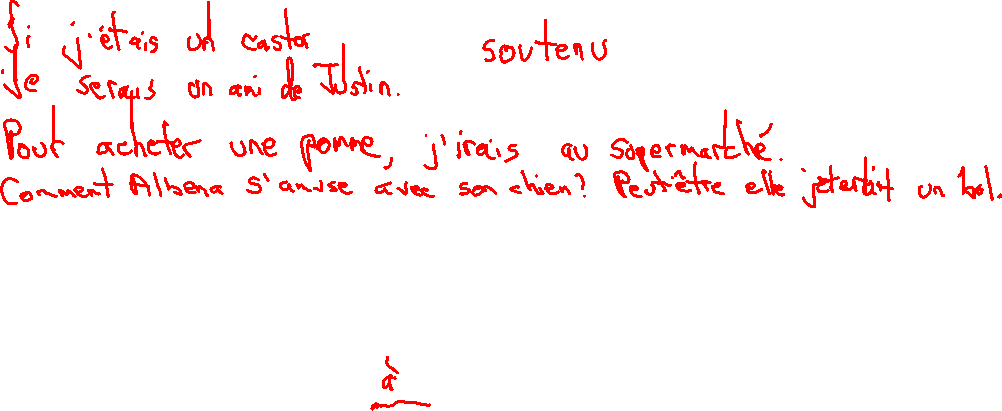 Si j'étais un castor
soutenu
Je serais un ami de Justin.
Pour acheter une pomme, j'irais au supermarché.
Comment Albena s'amuse avec son chien? Peut-être elle jeterait un bal.
à